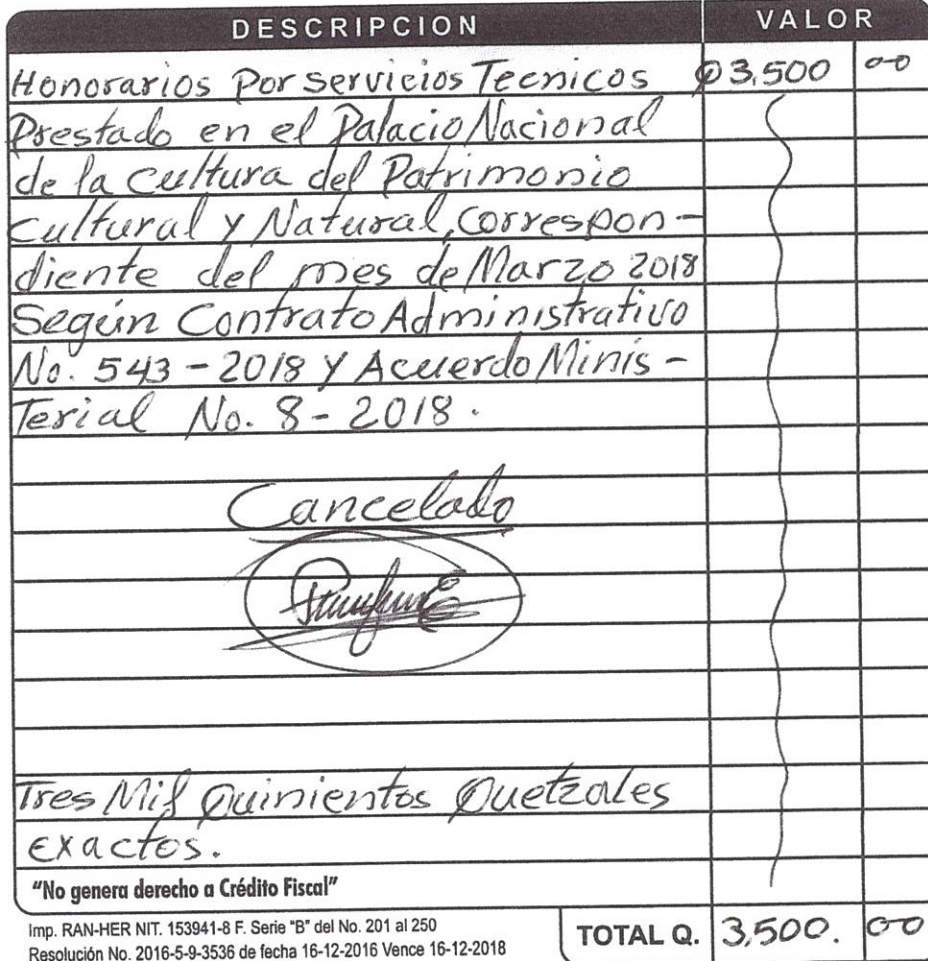 DESCRIPCION VALOR
Honorarios Por servicios Tecnicos Q3,500 00
Prestado en el Palacio Nacional
de la Cultura del Patrimonio
Cultural y Natural, Correspon-
diente del mes de Marzo 2018
Según Contrato Administrativo
No. 543-2018 y Acuerdo Minis-
Terial No. 8-2018.
Cancelado
Tres Mil Quinientos Quetzales
exactos.
"No genera derecho a Crédito Fiscal"
Imp. RAN-HER NIT. 153941-8 F. Serie "B" del No. 201 al 250
Resolución No. 2016-5-9-3536 de fecha 16-12-2016 Vence 16-12-2018
TOTAL Q. 3,500. 00